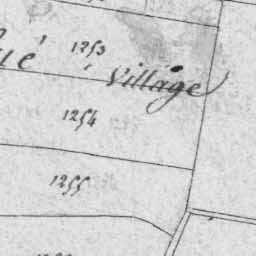 1253
Village
1254
1255